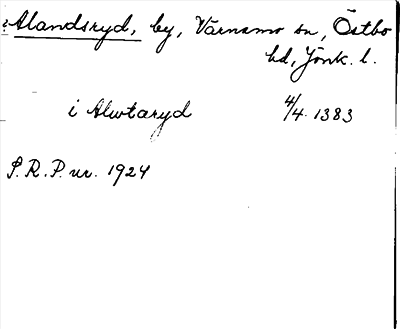 Alandsryd, by, Värnamo sn, Östbo
hd, Jönk. l.
i Alwtaryd 4/4 1383
S.R.P. nr. 1924